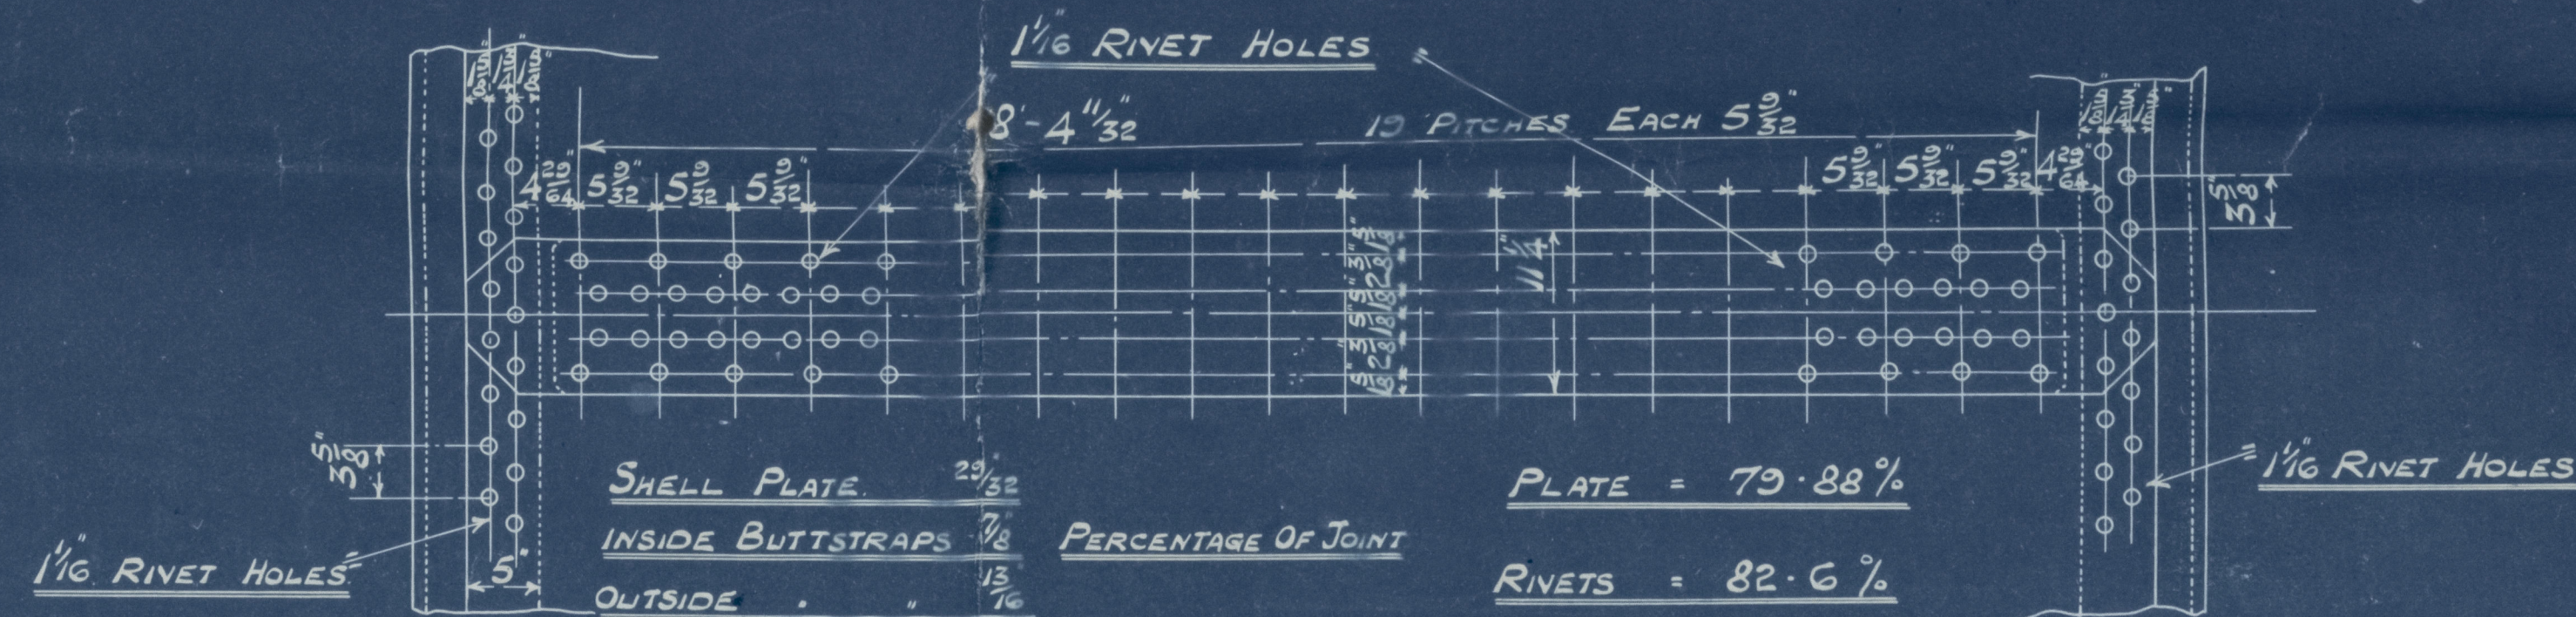 1 1/16" RIVET HOLES
8'-4 11/32"
19 PITCHES EACH 5 9/32"
4 29/64" 5 9/32" 5 9/32 5 9/32"
5 9/32" 5 9/32" 5 9/32" 4 29/64"
3 5/8"
1 5/8" 2 3/8" 1 5/8" 1 5/8" 2 3/8" 1 5/8"
11 1/4"
3 5/8"
SHELL PLATE. 29/32"
INSIDE BUTTSTRAPS 7/8"
OUTSIDE " " 13/16"
PERCENTAGE OF JOINT
PLATE = 79.88%
RIVETS = 82.6%
1 1/16" RIVET HOLES
5"
1 1/16" RIVET HOLES